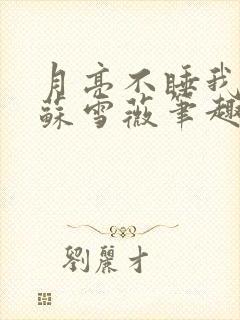 月亮不睡我
蘇雪薇筆趣
劉麗才